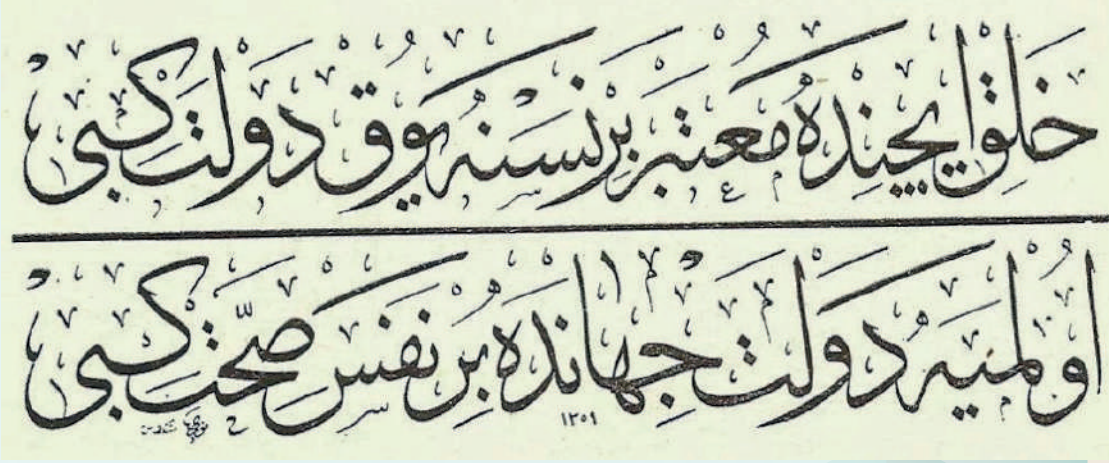 خلق ایچنده معتبر بر نسنه یوق دولت كبی
اولمیه دولت جهانده بر نفس صحت كبی
١٣٥٩